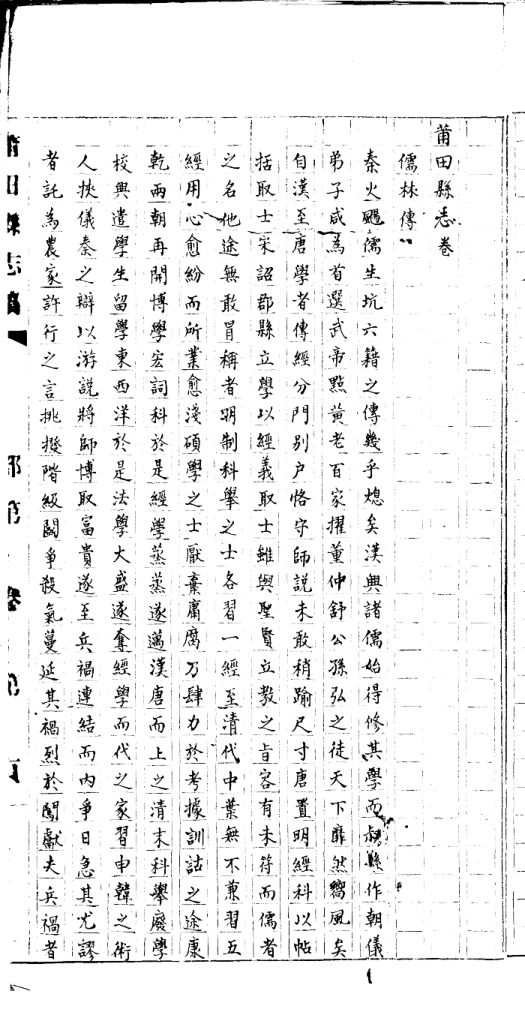 莆田縣志卷
儒林傳
秦火颺儒生坑六籍之傳幾乎熄矣漢興諸儒始得修其學而叔孫作朝儀
弟子咸為首選武帝黜黃老百家擢董仲舒公孫弘之徒天下靡然嚮風矣
自漢至唐學者傳經分門別户恪守師說未敢稍踰尺寸唐置明經科以帖
括取士宋詔郡縣立學以經義取士雖與聖賢立教之旨容有未符而儒者
之名他途無敢冒稱者明制科舉之士各習一經至清代中葉無不兼習五
經用心愈紛而所業愈淺碩學之士厭棄庸腐乃肆力於考據訓詁之途康
乾兩朝再開博學宏詞科於是經學蒸蒸遂邁漢唐而上之清末科舉廢學
校興遣學生留學東西洋於是法學大盛遂奪經學而代之家習申韓之術
人挾儀秦之辯以游說將帥博取富貴遂至兵禍連結而內爭日急其尤謬
者託為農家許行之言挑撥階級鬭爭殺氣蔓延其禍烈於闖獻夫兵禍者
莆田縣志稿
部第 卷 第 頁